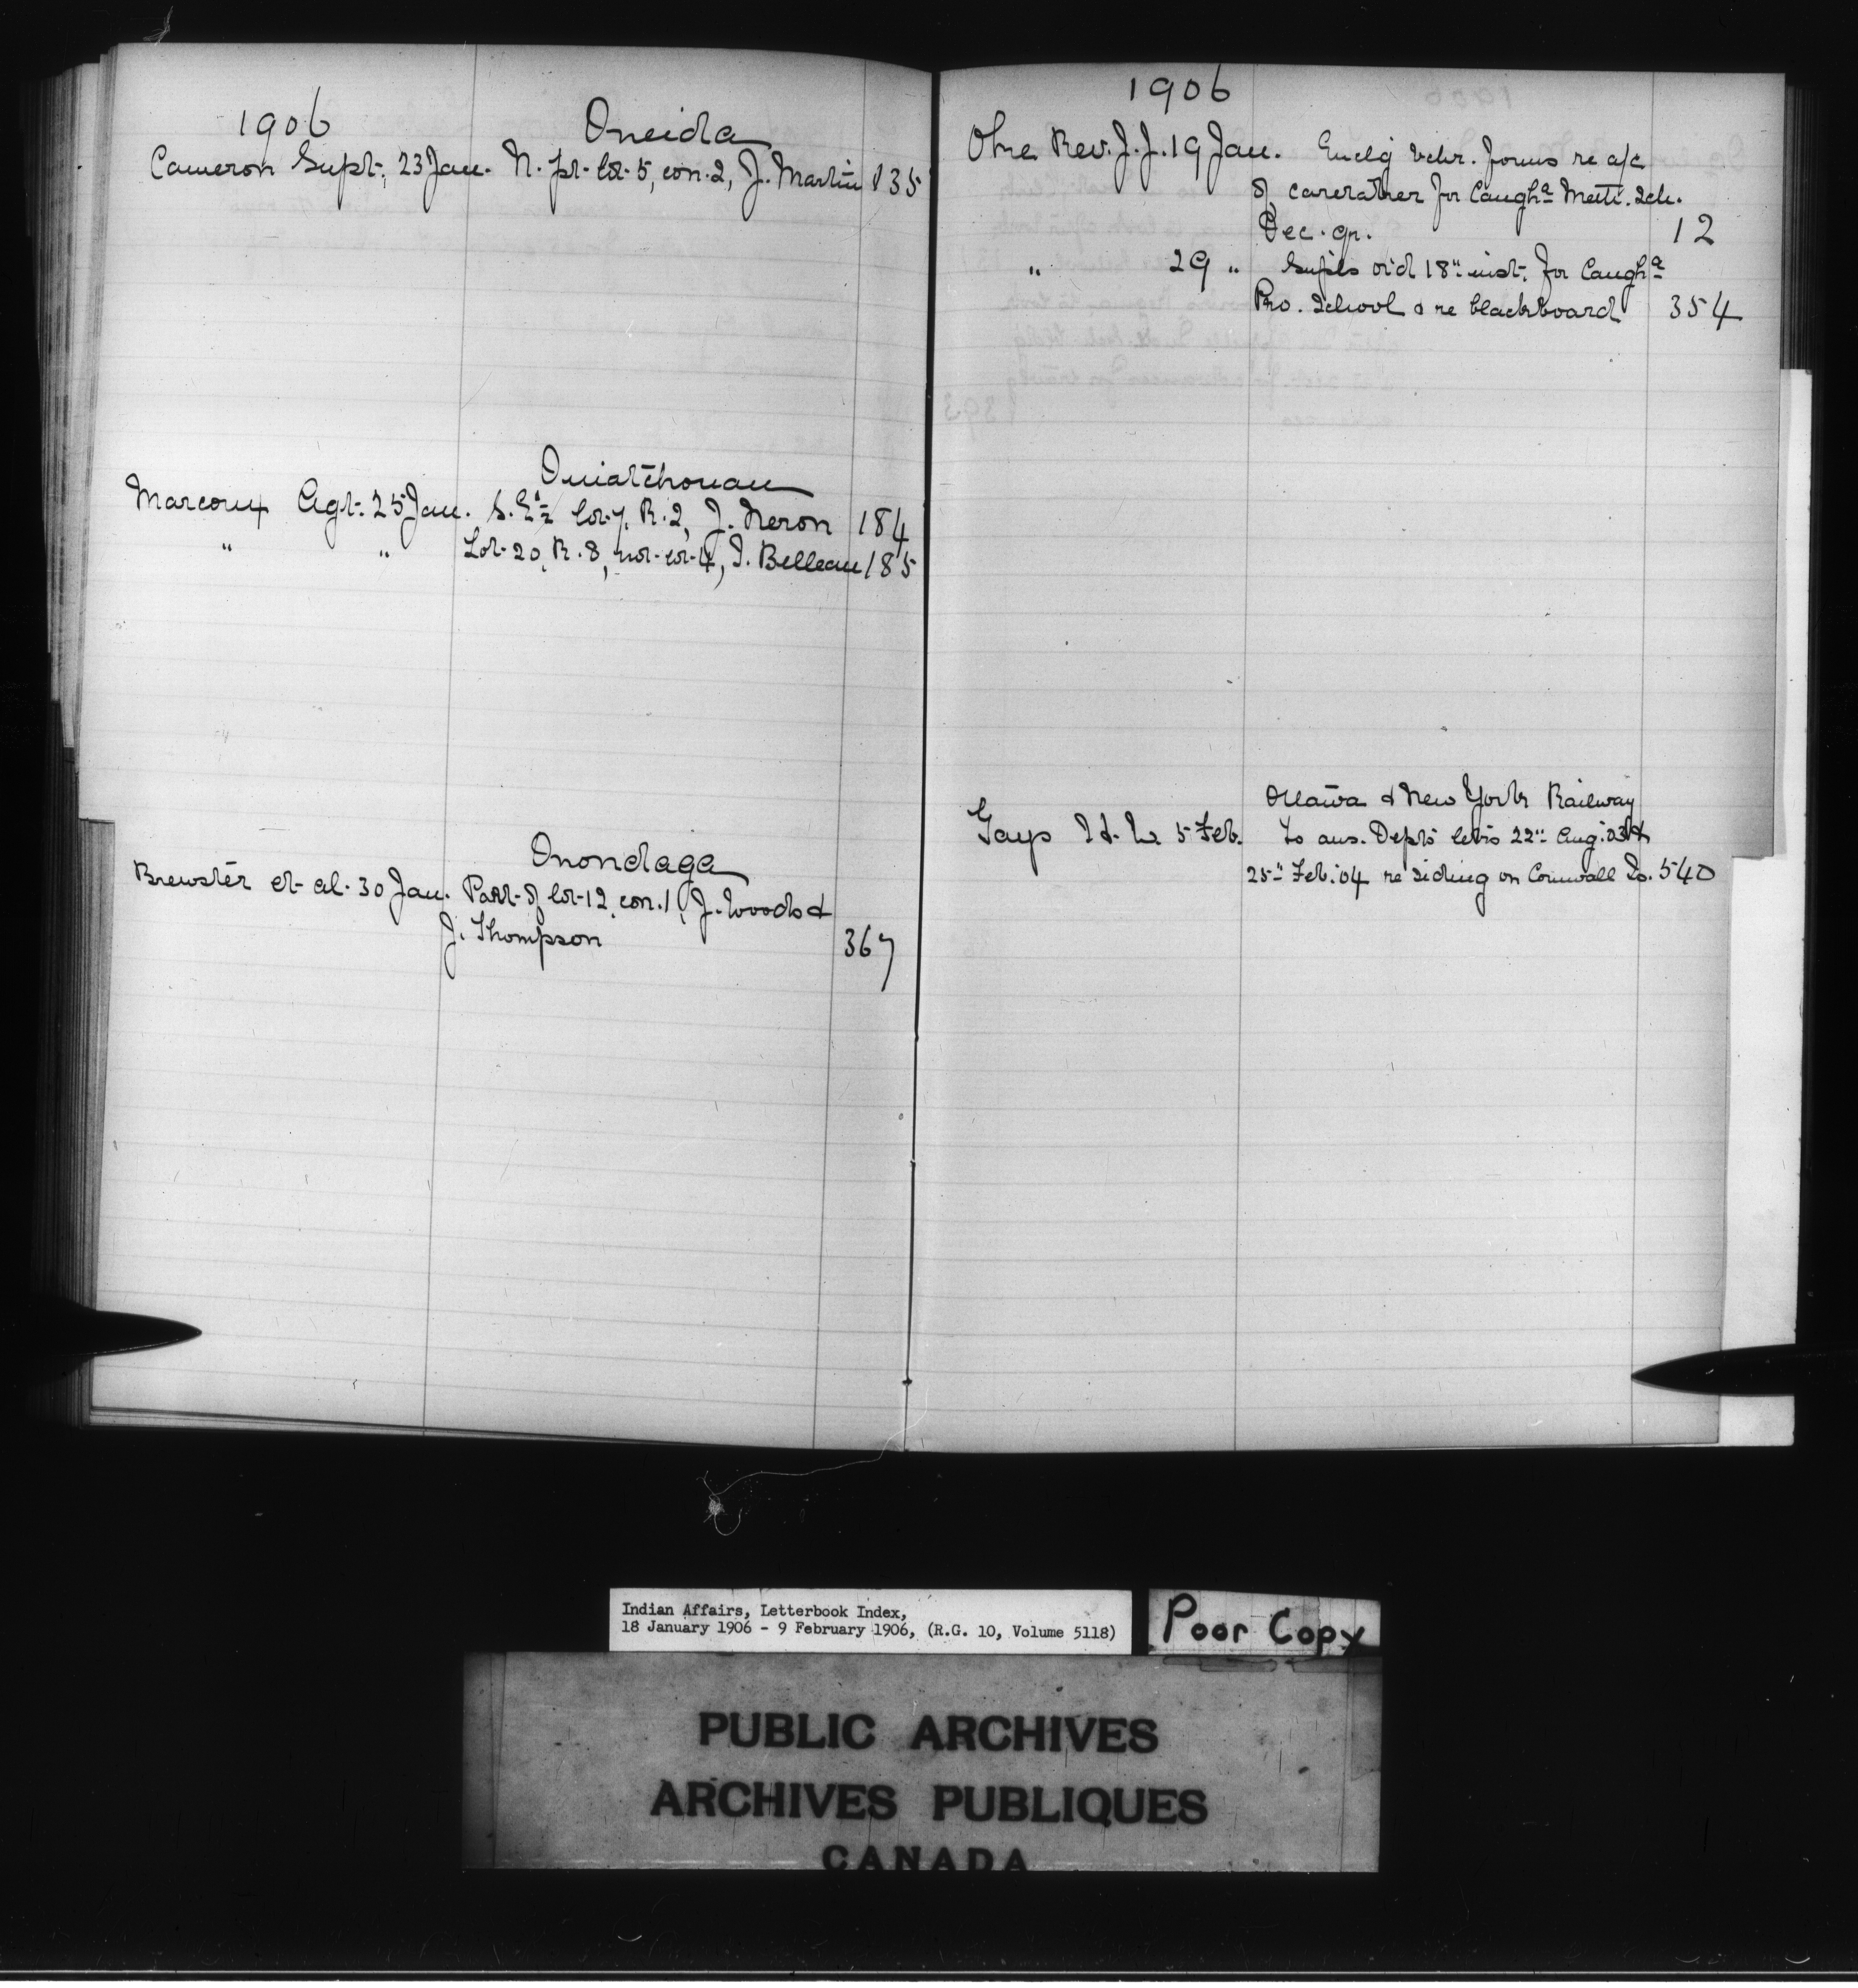 1906 Oneida
Cameron Supt. 23 Jan. N. pt. lot 5, con. 2, J. Martin 135
Ouiatchouan
Marcoux Agt. 25 Jan. S.E. ½ lot 7, R. 2, J. Neron 184
" " Lot 20, R. 8, not lot 4, J. Belleau 185
Onondaga
Brewster et al. 30 Jan. Part of lot 12, con. 1, J. Woods &
J. Thompson 367
1906
Rev. J. J. 19 Jan. Enclg vchr. forms re a/c
of caretaker for Caugha Meth. Sch.
Dec. qr. 12
" 29 " Suples ord 18" inst. for Caugha
Pro. School & re blackboard 354
Ottawa & New York Railway
Gays H. W. 5 Feb. To ans. Depts letrs 22" Aug. 03 &
25" Feb. 04 re siding on Cornwall Is. 540
Indian Affairs, Letterbook Index,
18 January 1906 - 9 February 1906, (R.G. 10, Volume 5118)
Poor Copy
PUBLIC ARCHIVES
ARCHIVES PUBLIQUES
CANADA